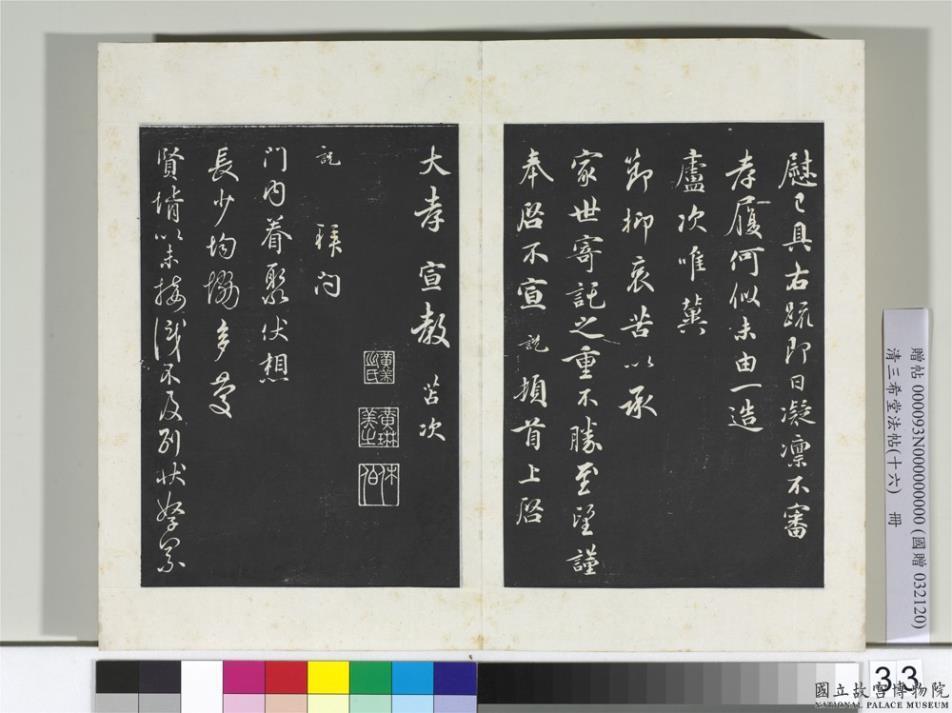 慰已具右疏即日凝凛不審
孝履何似未由一造
廬次唯冀
節抑哀苦以承
家世寄託之重不勝至望謹
奉啓不宣說頓首上啓
大孝宣教 苫次
說 拜問
門內眷聚伏想
長少均協多慶
賢壻以未接識不及別狀
贈帖 000093N000000000 (國贈 032120)
清三希堂法帖(十六) 冊
33
國立故宮博物院
NATIONAL PALACE MUSEUM